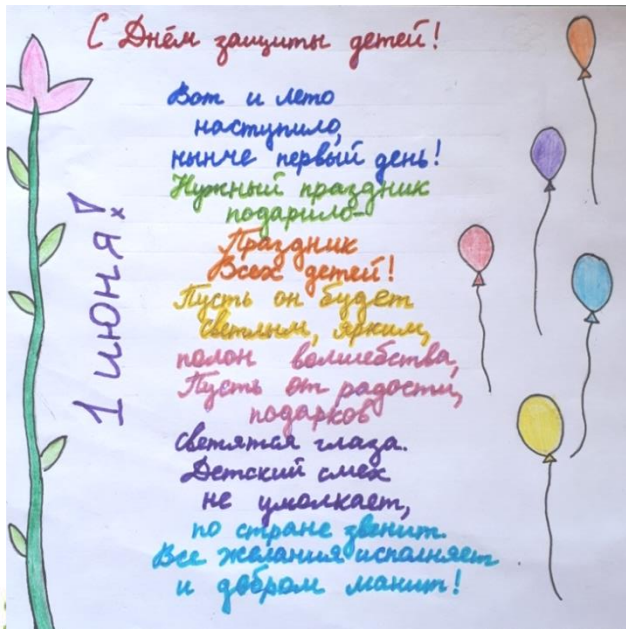 С Днём защиты детей!
1 июня!
Вот и лето
наступило,
нынче первый день!
Нужный праздник
подарило-
Праздник
Всех детей!
Пусть он будет
светлым, ярким,
полон волшебства,
Пусть от радости,
подарков
Светятся глаза.
Детский смех
не умолкает,
по стране звенит.
Все желания исполняет
и добром манит!